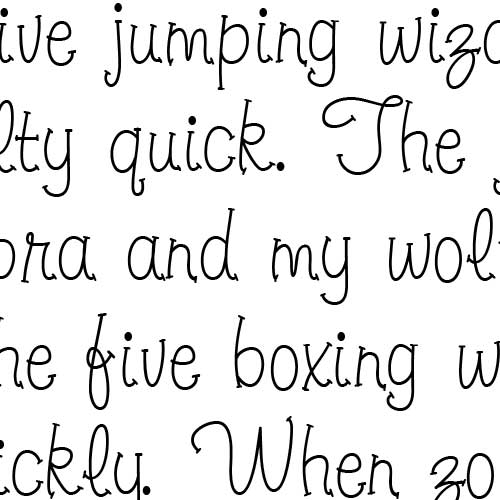 ive jumping wiz
lty quick. The
ora and my wol
he five boxing w
ickly. When zo